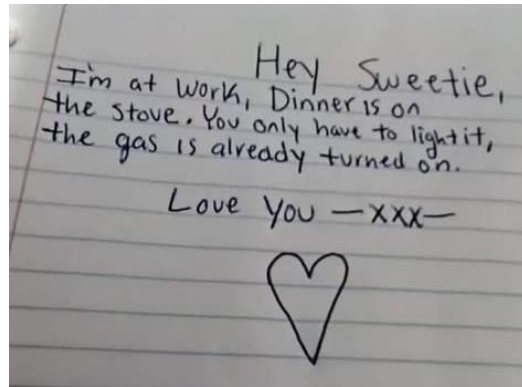 Hey Sweetie,
I'm at work, Dinner is on
the stove. You only have to light it,
the gas is already turned on.
Love You —xxx—